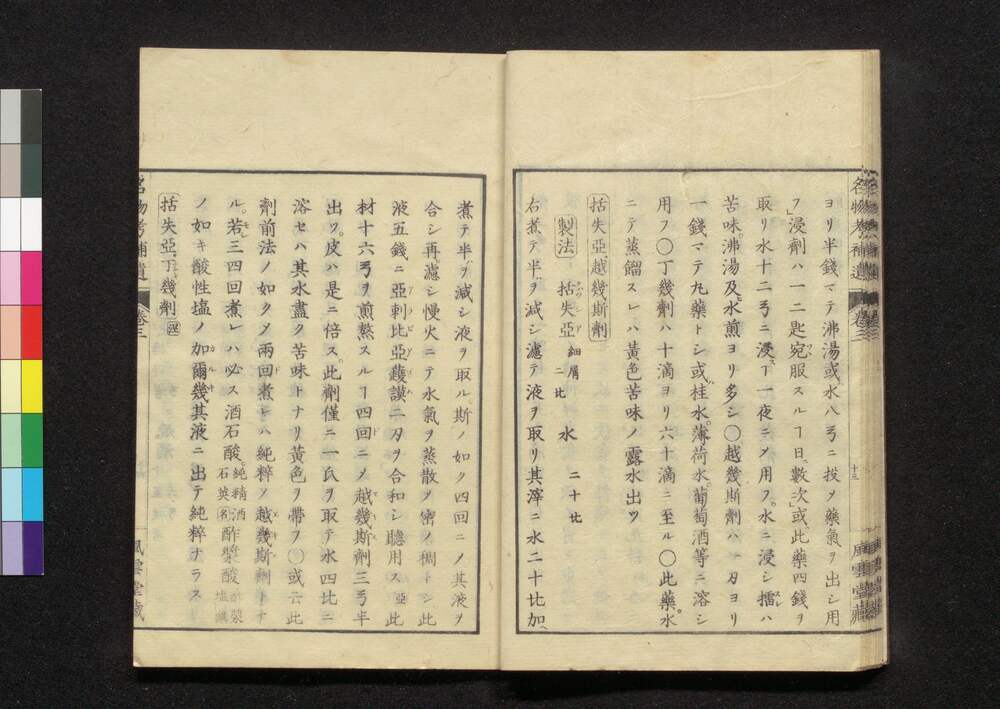 ヨリ半錢マテ沸湯或水八弓ニ投〆藥氣ヲ出シ用
フ浸劑ハ一二匙宛服スルヿ日數次或此藥四錢ヲ
取リ水十二弓ニ浸スヿ一夜ニ〆用フ水ニ浸シ擂ハ
苦味沸湯及水煎ヨリ多シ〇越幾斯劑ハ一刄ヨリ
一錢マテ丸藥トシ或桂水薄荷水葡萄酒等ニ溶シ
用フ〇丁幾劑ハ十滴ヨリ六十滴ニ至ル〇此藥水
ニテ蒸餾スレハ黃色苦味ノ露水出ツ
括失亞越幾斯劑
製法 括失亞 細屑 二比 水 二十比
右煮テ半ヲ減シ濾テ液ヲ取リ其滓ニ水二十比加
名物考補遺 卷三 十三 風雲堂藏
煮テ半ヲ減シ液ヲ取ル斯ノ如ク四回ニ〆其液ヲ
合シ再濾シ慢火ニテ水氣ヲ蒸散〆密ノ稠トシ此
液五錢ニ亞刺比亞護謨二刄ヲ合和シ聽用ス 亞 此
材十六弓ヲ煎熬スルヿ四回ニ〆越幾斯劑三弓半
出ツ皮ハ是ニ倍ス此劑僅ニ一氏ヲ取テ水四比ニ
溶セハ其水盡ク苦味トナリ黃色ヲ帶フ〇或云此
劑前法ノ如ク〆兩回煮レハ純粹ノ越幾斯劑トナ
ル若三四回煮レハ必ス酒石酸 純精酒石英 名酢漿酸
ノ如キ酸性塩ノ加爾幾其液ニ出テ純粹ナラス
括失亞丁幾劑
名物考補遺 卷三 風雲堂藏